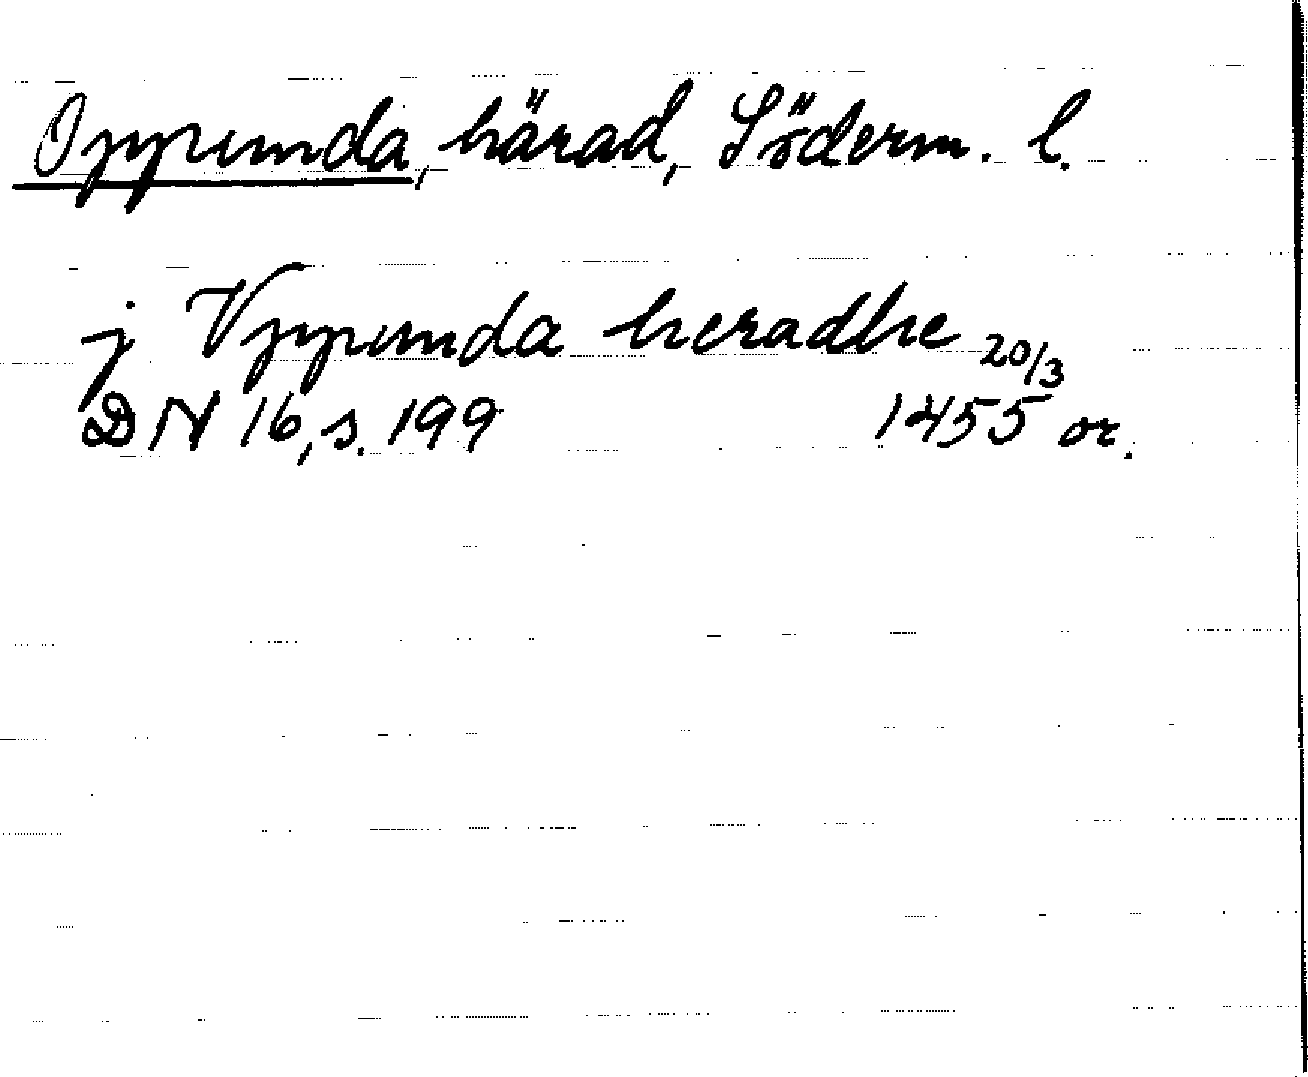 Oppunda, härad, Söderm. l.
j Vppunda heradhe 20/3
DN 16, s. 199 1455 or.